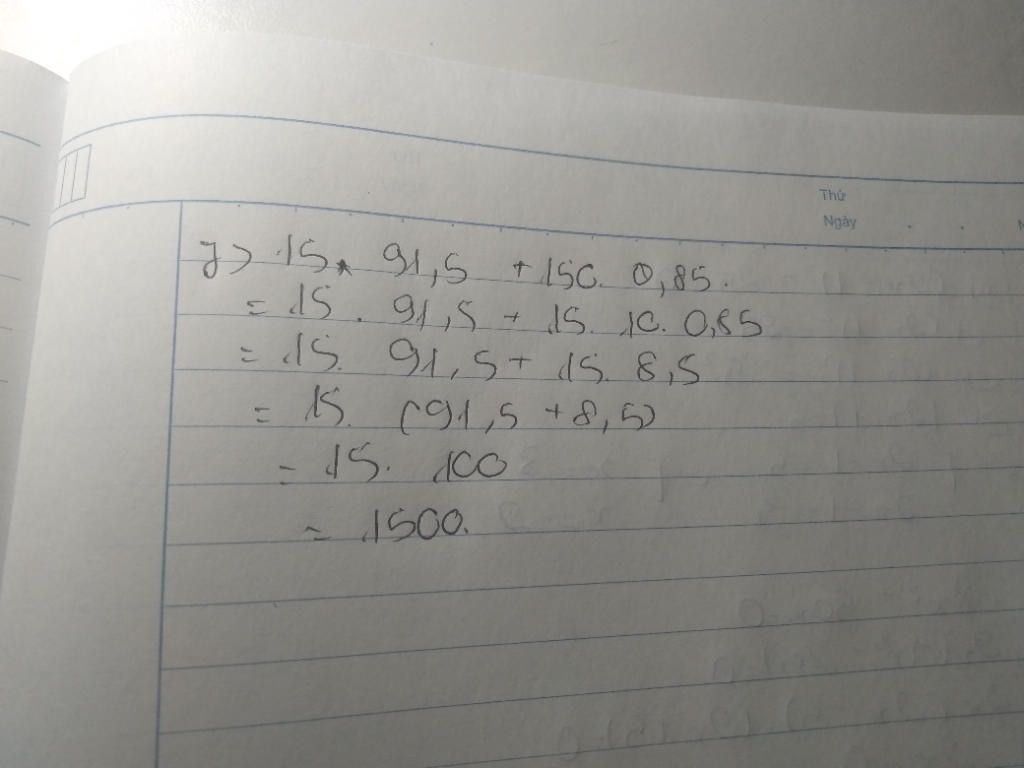 Thứ
Ngày
y) 15. 91,5 + 150. 0,85.
= 15. 91,5 + 15. 10. 0,85
= 15. 91,5 + 15. 8,5
= 15. (91,5 + 8,5)
= 15. 100
= 1500.